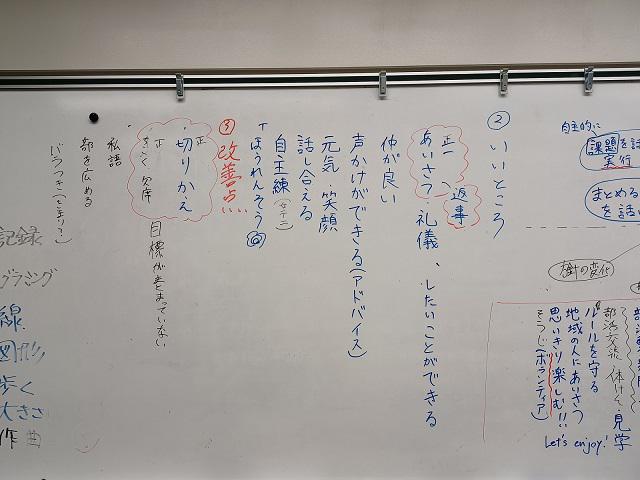 自主的に
課題を話
実行
まとめる
を話
樹の変化
部活交流 体けん・見学
ルールを守る
地域の人にあいさつ
思いきり楽しむ!!
そうじ(ボランティア)
Let's enjoy!
② いいところ
返事
正一
あいさつ・礼儀、したいことができる
仲が良い
声かけができる(アドバイス)
元気 笑顔
話し合える
自主練
「ほうれんそう」◎
③ 改善点…
正
切りかえ
正
欠席
目標がまとまっていない
私語
部を広める
バラつき(とまり?)
記録
線
図形
歩く
大きさ
作曲